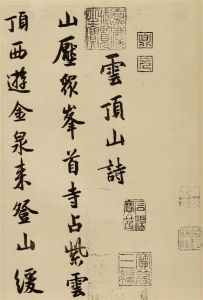 雲頂山詩
山壓眾峯首寺占紫雲
頂西遊金泉來登山緩